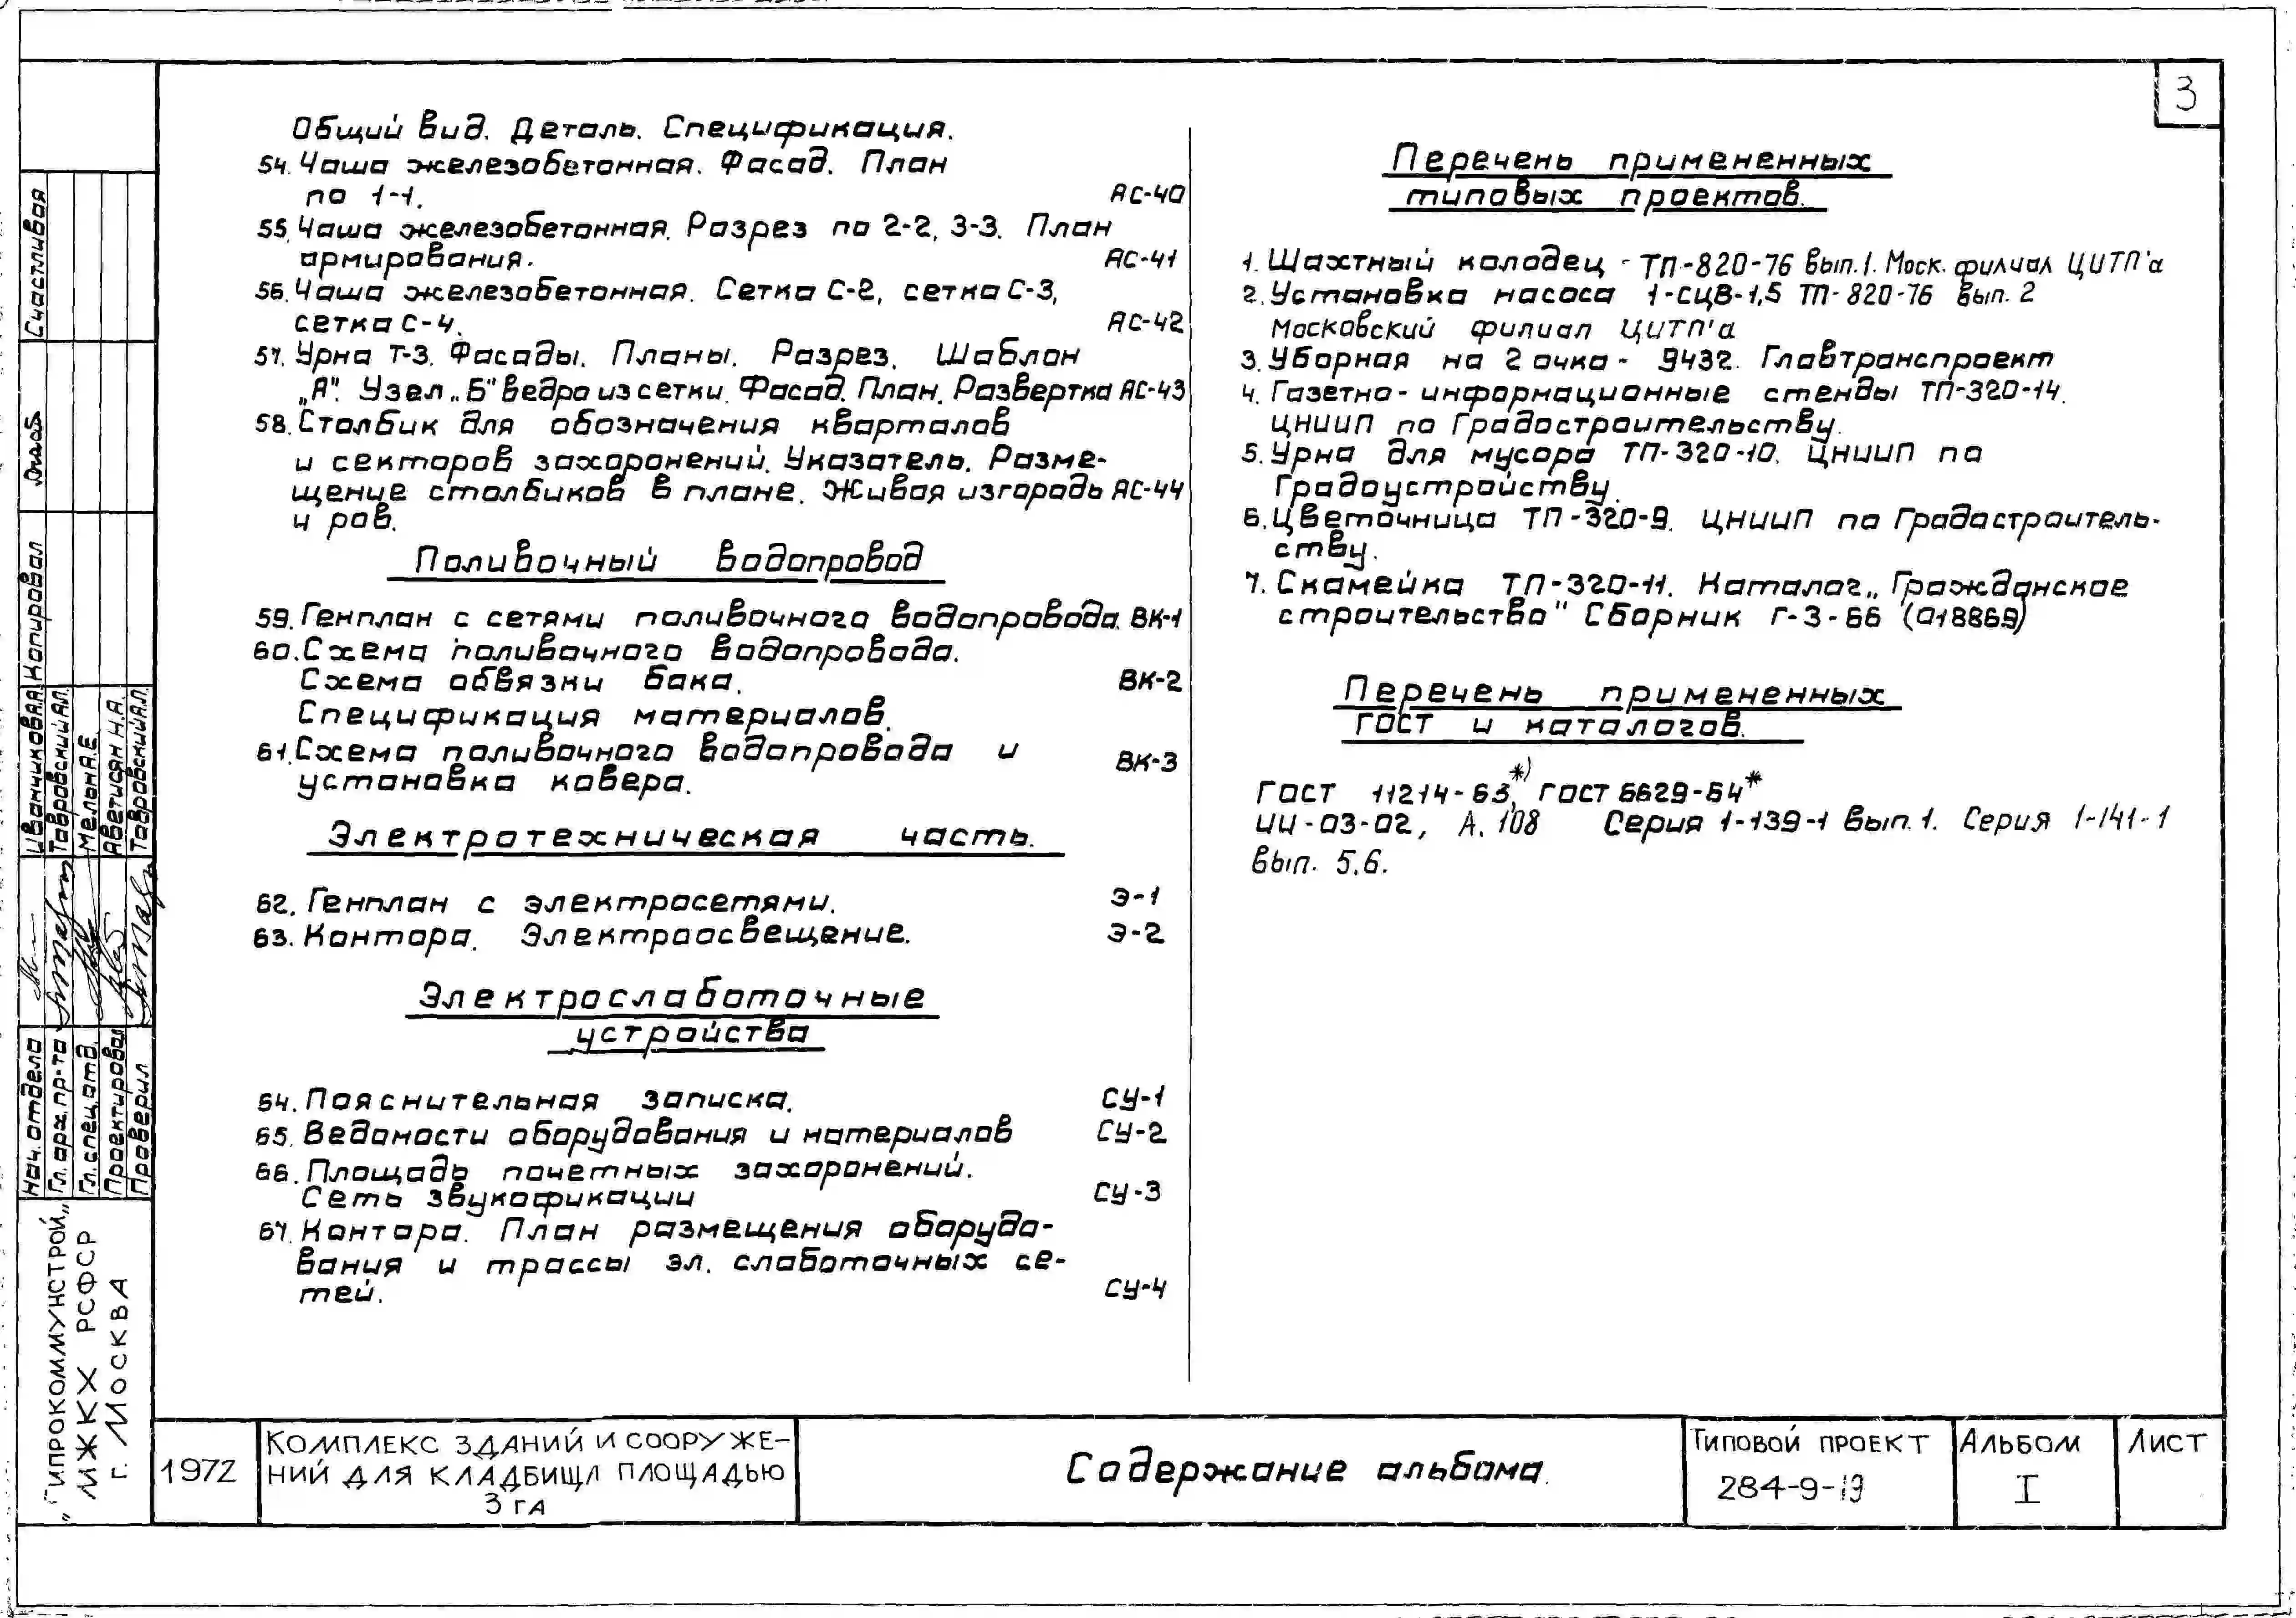 3
Общий вид. Деталь. Спецификация.
54. Чаша железобетонная. Фасад. План
по 1-1. АС-40
55. Чаша железобетонная. Разрез по 2-2, 3-3. План
армирования. АС-41
56. Чаша железобетонная. Сетка С-2, сетка С-3,
сетка С-4. АС-42
57. Урна Т-3. Фасады. Планы. Разрез. Шаблон
„А". Узел „Б" ведро из сетки. Фасад. План. Развертка АС-43
58. Столбик для обозначения кварталов
и секторов захоронений. Указатель. Разме-
щение столбиков в плане. Живая изгородь АС-44
и ров.
Поливочный водопровод
59. Генплан с сетями поливочного водопровода. ВК-1
60. Схема поливочного водопровода.
Схема обвязки бака. ВК-2
Спецификация материалов.
61. Схема поливочного водопровода и
установка ковера. ВК-3
Электротехническая часть.
62. Генплан с электросетями. Э-1
63. Контора. Электроосвещение. Э-2
Электрослаботочные
устройства
64. Пояснительная записка. СУ-1
65. Ведомости оборудования и материалов СУ-2
66. Площадь почетных захоронений.
Сеть звукофикации СУ-3
67. Контора. План размещения оборудо-
вания и трассы эл. слаботочных се-
тей. СУ-4
Перечень примененных
типовых проектов.
1. Шахтный колодец - ТП-820-76 вып. 1. Моск. филиал ЦИТП'а
2. Установка насоса 1-СЦВ-1,5 ТП-820-76 вып. 2
Московский филиал ЦИТП'а
3. Уборная на 2 очка - 9432. Главтранспроект
4. Газетно-информационные стенды ТП-320-14.
ЦНИИП по Градостроительству.
5. Урна для мусора ТП-320-10. ЦНИИП по
Градоустройству.
6. Цветочница ТП-320-9. ЦНИИП по Градостроитель-
ству.
7. Скамейка ТП-320-11. Каталог „Гражданское
строительство" Сборник Г-3-66 (018869)
Перечень примененных
ГОСТ и каталогов.
ГОСТ 11214-63*), ГОСТ 6629-64*
ИИ-03-02, А. 108 Серия 1-139-1 вып. 1. Серия 1-141-1
вып. 5.6.
Счастливая
Копировал
Иванчикова Я.Я.
Тавровский А.П.
Мелон А.Е.
Аветисян Н.А.
Тавровский А.П.
Нач. отдела
Гл. арх. пр-та
Гл. спец. отд.
Проектировал
Проверил
„Гипрокоммунстрой"
МЖКХ РСФСР
г. Москва
1972
Комплекс зданий и сооруже-
ний для кладбищ площадью
3 га
Содержание альбома.
Типовой проект
284-9-13
Альбом
I
Лист